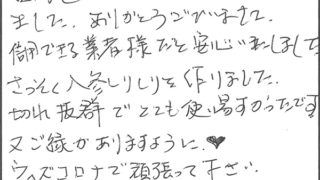 ました。ありがとうございました。
信用できる業者様だと安心いたしました
さっそく人参しりしりを作りました。
切れ抜群でとても使い易すかったです
又ご縁がありますように♥
ウィズコロナで頑張って下さい。